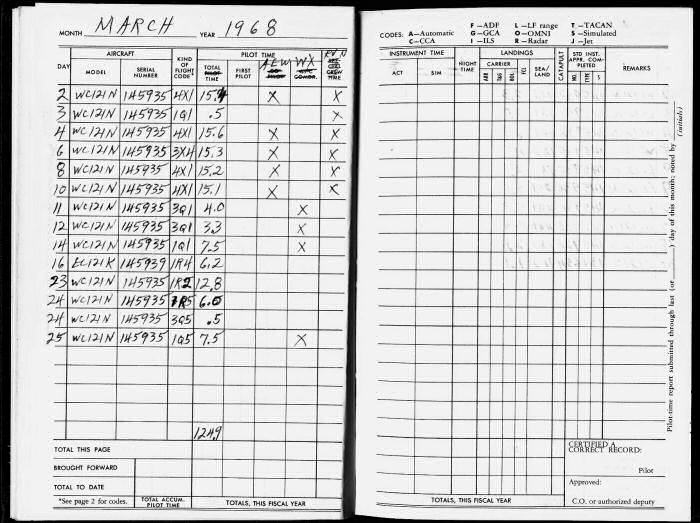 MONTH MARCH YEAR 1968
AIRCRAFT
PILOT TIME
DAY MODEL SERIAL NUMBER KIND OF FLIGHT CODE* TOTAL TIME FIRST PILOT AEW WX
2 WC121N 145935 4X1 15.4 X X
3 WC121N 145935 1Q1 .5 X
4 WC121N 145935 4X1 15.6 X X
6 WC121N 145935 3X4 15.3 X X
8 WC121N 145935 4X1 15.2 X X
10 WC121N 145935 4X1 15.1 X X
11 WC121N 145935 3Q1 4.0 X
12 WC121N 145935 3Q1 3.3 X
14 WC121N 145935 1Q1 7.5 X
16 EC121K 145939 1R4 6.2
23 WC121N 145935 1R2 12.8
24 WC121N 145935 R5 6.0
24 WC121N 145935 3Q5 .5
25 WC121N 145935 1Q5 7.5 X
124.9
TOTAL THIS PAGE
BROUGHT FORWARD
TOTAL TO DATE
*See page 2 for codes. TOTAL ACCUM. PILOT TIME TOTALS, THIS FISCAL YEAR
F—ADF L—LF range T—TACAN
CODES: A—Automatic G—GCA O—OMNI S—Simulated
C—CCA I—ILS R—Radar J—Jet
INSTRUMENT TIME
LANDINGS
ACT SIM NIGHT TIME CARRIER SEA/LAND CATAPULT STD INST. APPR. COMPLETED REMARKS
ARR T&G BOL FCL NO. TYPE S
Pilot-time report submitted through last (or ____) day of this month; noted by ____ (initials)
CERTIFIED A CORRECT RECORD:
Pilot
Approved:
TOTALS, THIS FISCAL YEAR
C.O. or authorized deputy